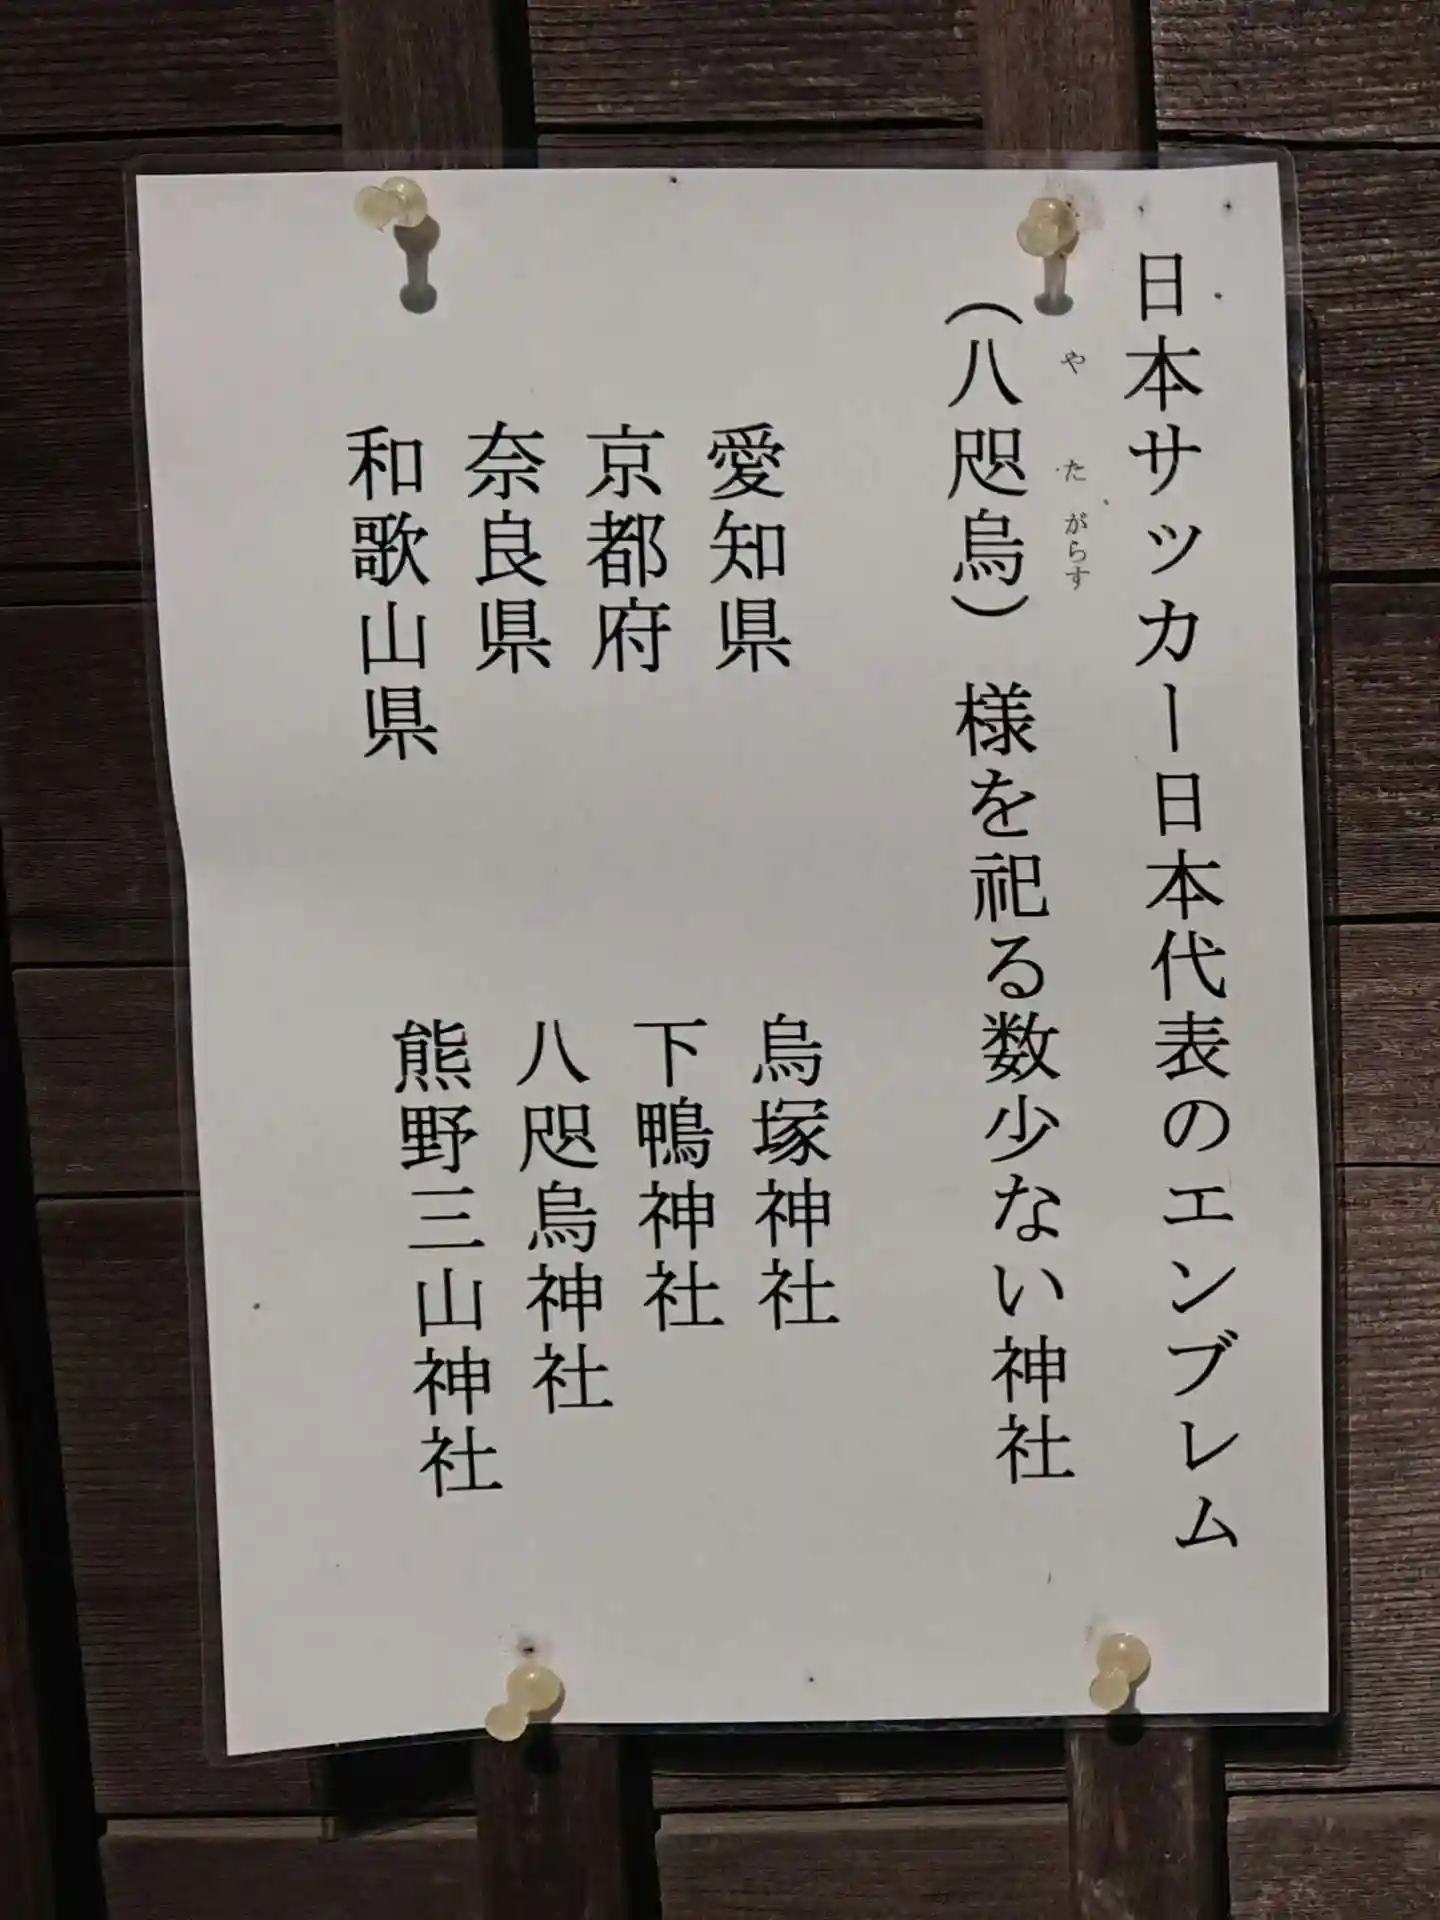 日本サッカー日本代表のエンブレム
やたがらす
(八咫烏)様を祀る数少ない神社
愛知県 烏塚神社
京都府 下鴨神社
奈良県 八咫烏神社
和歌山県 熊野三山神社